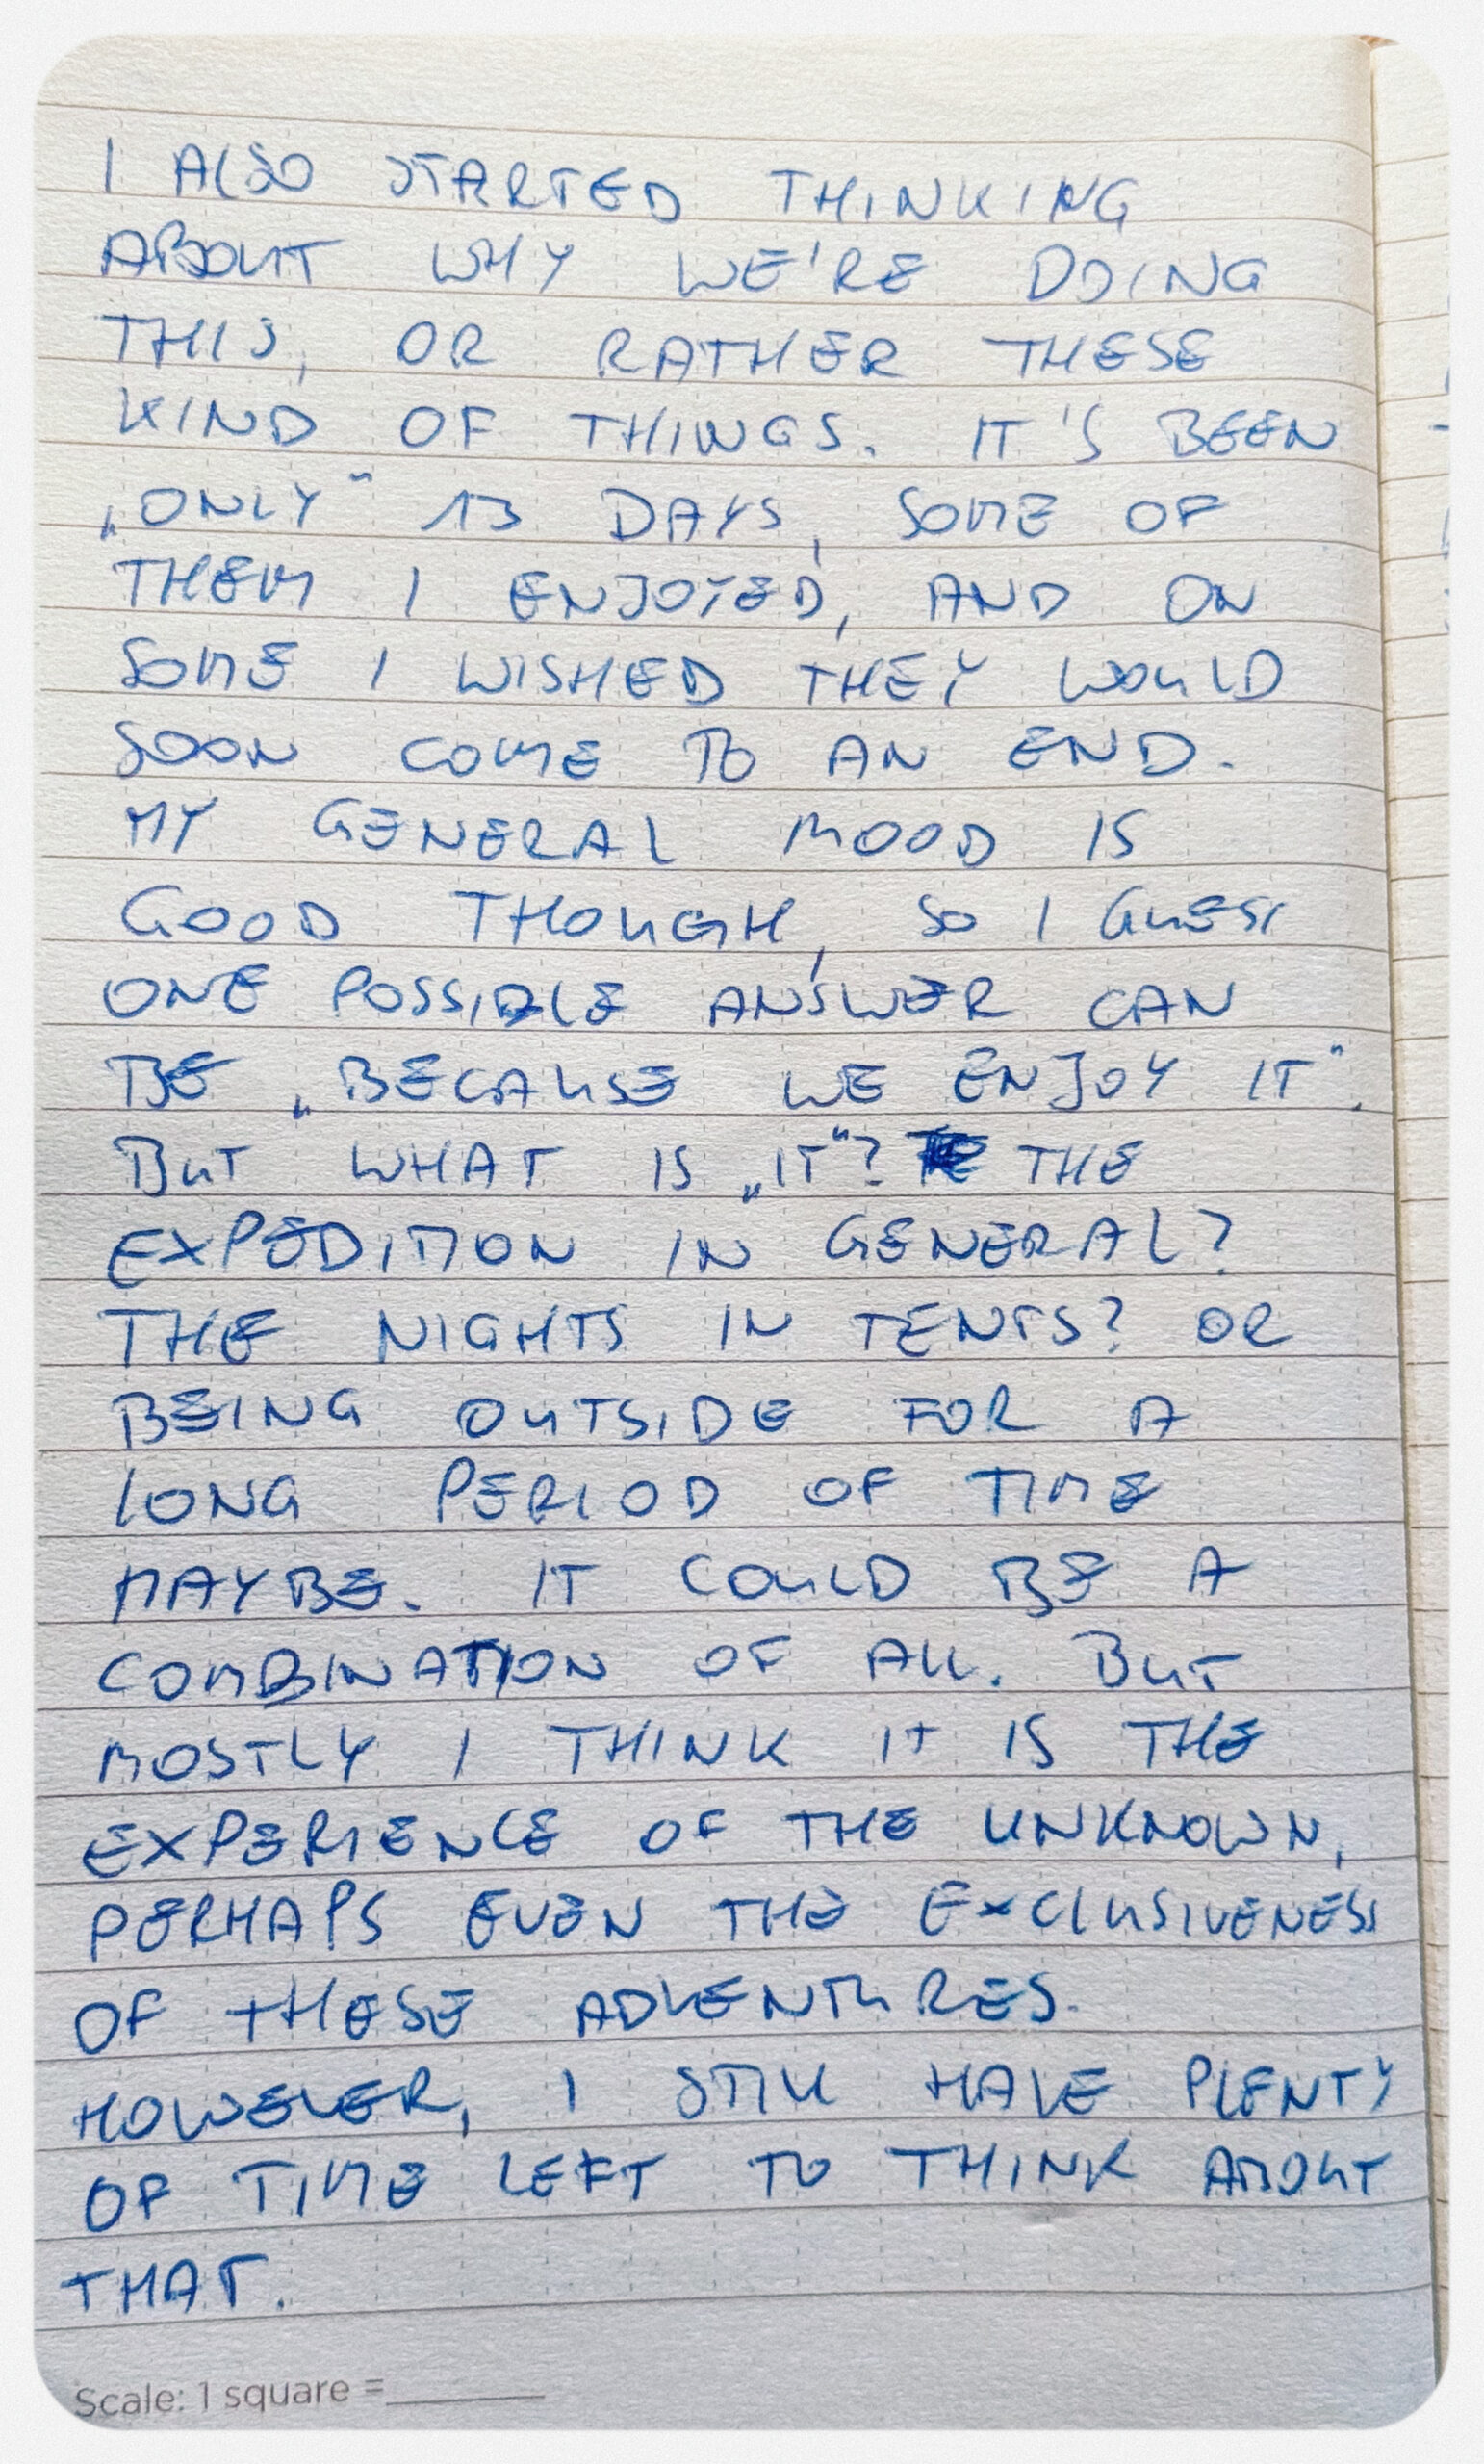 I ALSO STARTED THINKING
ABOUT WHY WE'RE DOING
THIS, OR RATHER THESE
KIND OF THINGS. IT'S BEEN
„ONLY“ 13 DAYS, SOME OF
THEM I ENJOYED, AND ON
SOME I WISHED THEY WOULD
SOON COME TO AN END.
MY GENERAL MOOD IS
GOOD THOUGH, SO I GUESS
ONE POSSIBLE ANSWER CAN
BE „BECAUSE WE ENJOY IT“.
BUT WHAT IS „IT“? THE
EXPEDITION IN GENERAL?
THE NIGHTS IN TENTS? OR
BEING OUTSIDE FOR A
LONG PERIOD OF TIME
MAYBE. IT COULD BE A
COMBINATION OF ALL. BUT
MOSTLY I THINK IT IS THE
EXPERIENCE OF THE UNKNOWN,
PERHAPS EVEN THE EXCLUSIVENESS
OF THESE ADVENTURES.
HOWEVER, I STILL HAVE PLENTY
OF TIME LEFT TO THINK ABOUT
THAT.
Scale: 1 square =